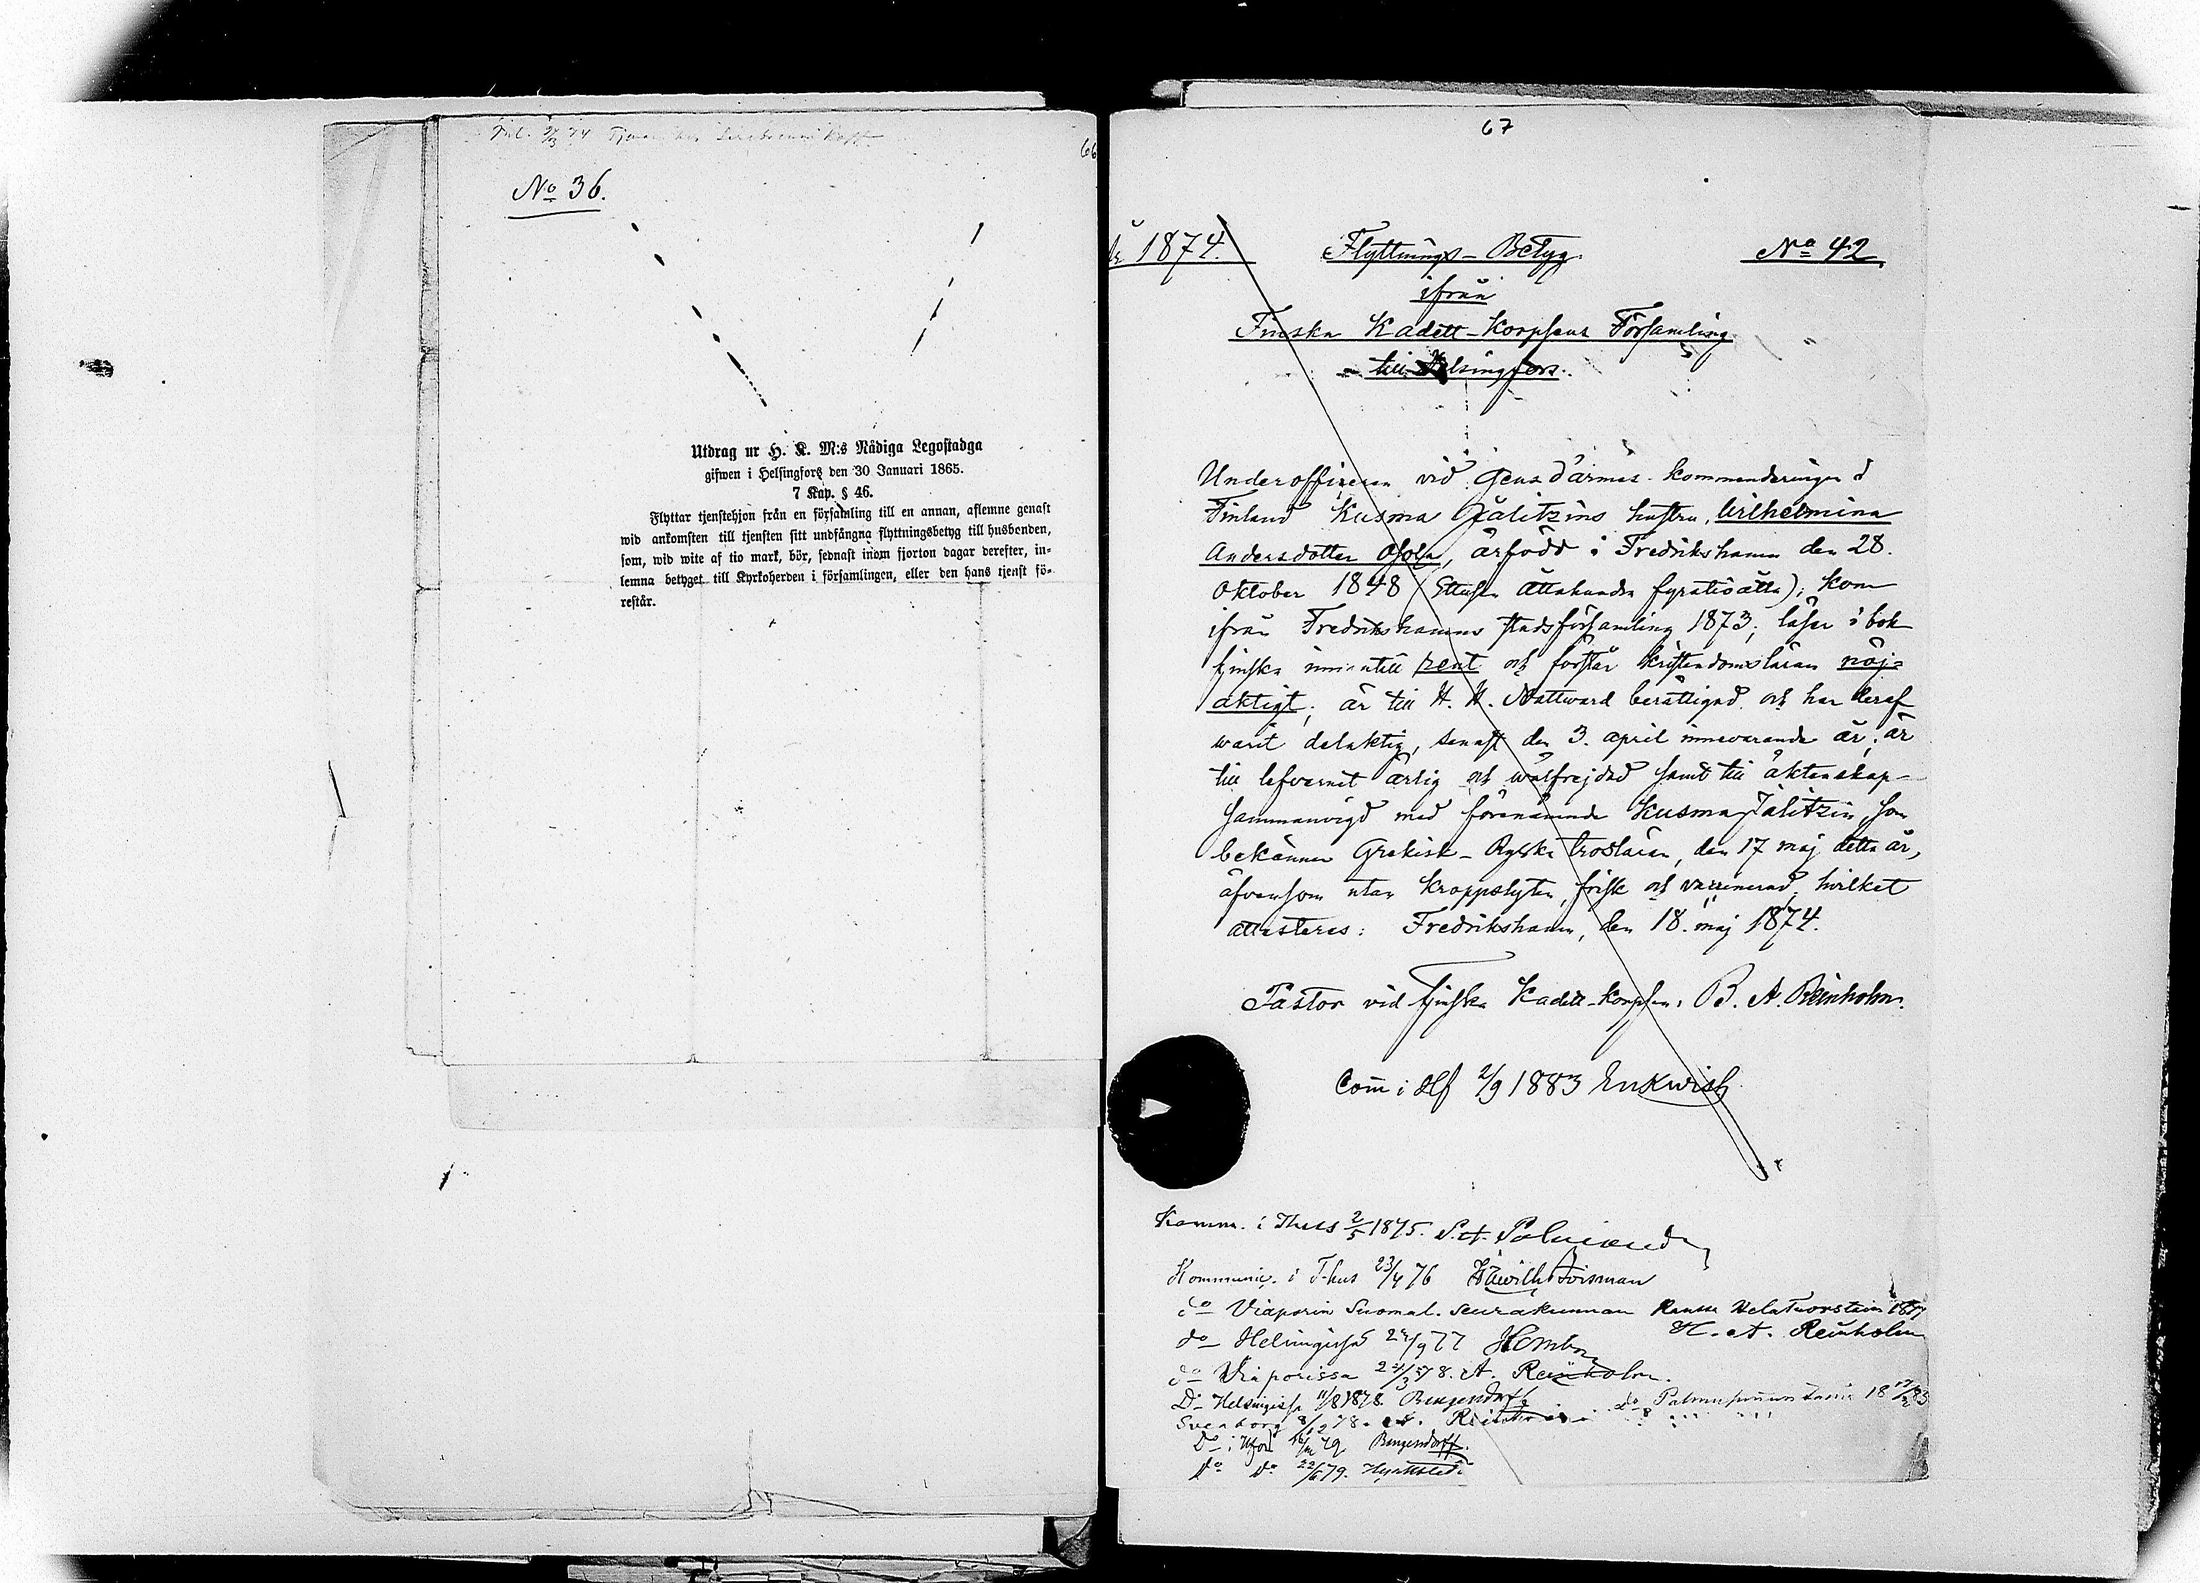 66
No 36.
Utdrag ur H. K. M:s Nådiga Legostadga
gifwen i Helsingfors den 30 Januari 1865.
7 Kap. § 46.
Flyttar tjenstehjon från en församling till en annan, aflemne genast
wid ankomsten till tjensten sitt undfångna flyttningsbetyg till husbonden,
som, wid wite af tio mark, bör, sednast inom fjorton dagar derefter, in-
lemna betyget till Kyrkoherden i församlingen, eller den hans tjenst fö-
restår.
67
År 1874. Flyttnings-Betyg No 42
ifrån
Finska Kadett-Korpsens Församling
till Helsingfors.
Underofficeren vid Gensdärmes-kommenderingen i
Finland Kusma Galitzins hustru, Wilhelmina
Andersdotter, ärfödd i Fredrikshamn den 28.
Oktober 1848 (Ettusen åttahundra fyratioåtta); kom
ifrån Fredrikshamns stadsförsamling 1873; läser i bok
finska innantill rent och förstår kristendomsläran nöj-
aktigt; är till H. H. Nattward berättigad och har deraf
warit delaktig, senast den 3. april innevarande år; är
till lefvernet ärlig och wälfrejdad samt till äktenskap
sammanvigd med förenämnde Kusma Galitzin, som
bekänner Grekisk-Ryska trosläran, den 17 maj detta år,
äfvensom utan kroppslyten, frisk och vaccinerad; hvilket
attesteras: Fredrikshamn, den 18. maj 1874.
Pastor vid Finska Kadett-Korpsen: B. A. Reinholm.
Com i Hlf 2/9 1883 Enkwist
Komm. i Thus 2/5 1875.
Kommunic. i T-hus 23/4 76
do Viaporin Suomal. seurakunnan
H. A. Reinholm
do Helsingissä 77
do Viaporissa 78. A. Reinholm.
Do Helsingissä 11/8 1878 Bengersdorff
Sveaborg 78.
Do i Hfors 79. Bengersdorff.
Do Do 79.